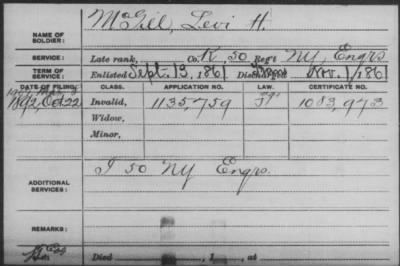 NAME OF SOLDIER: McGill, Levi H.
SERVICE: Late rank, Co. K, 50 Reg't NY Engrs
TERM OF SERVICE: Enlisted Sept. 13, 1861 Discharged Nov. 1, 1861
DATE OF FILING. CLASS. APPLICATION NO. LAW. CERTIFICATE NO.
1892, Oct 22 Invalid, 1135,759 1083,973
Widow,
Minor,
ADDITIONAL SERVICES: I 50 NY Engrs.
REMARKS:
Died , 1 , at